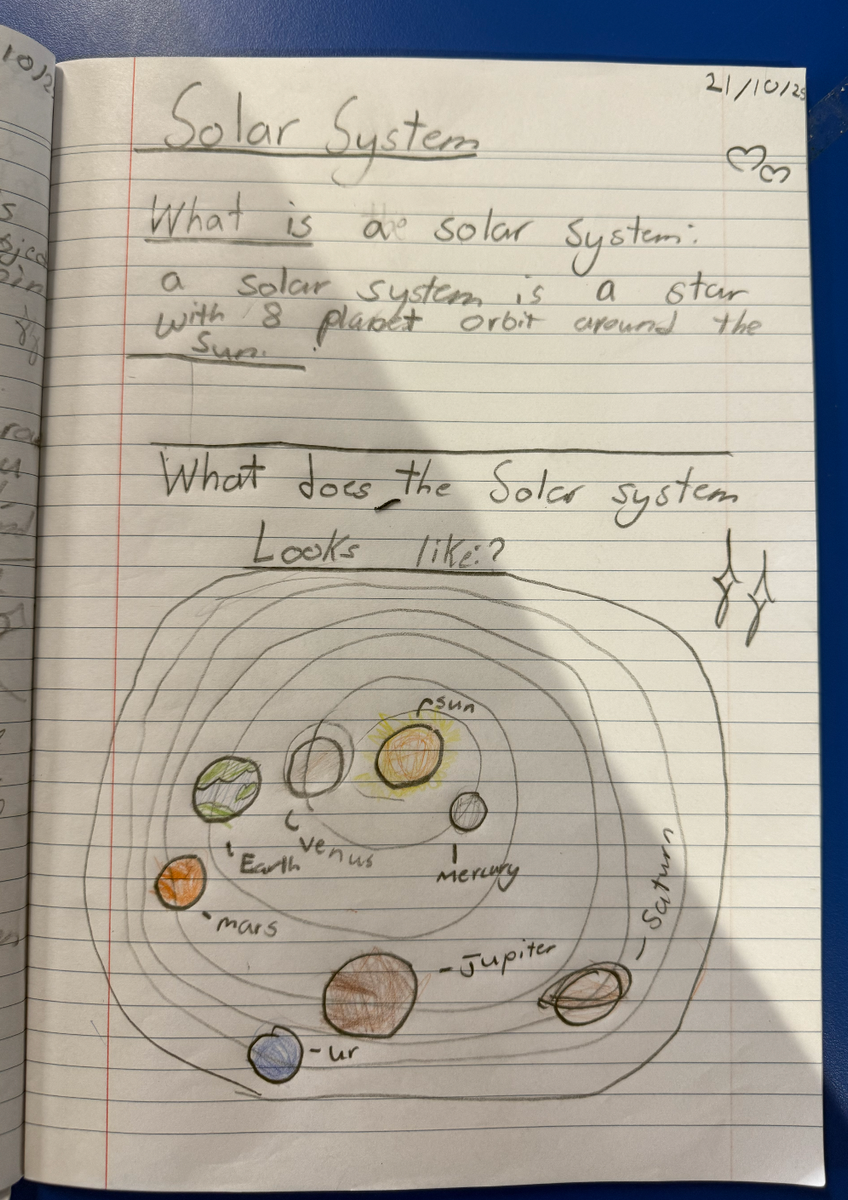 10/2
21/10/25
Solar System
What is a solar system:
a solar system is a star
with 8 planet orbit around the
sun.
What does the Solar system
Looks like:?
sun
Venus
Earth
Mercury
mars
Saturn
-Jupiter
-ur